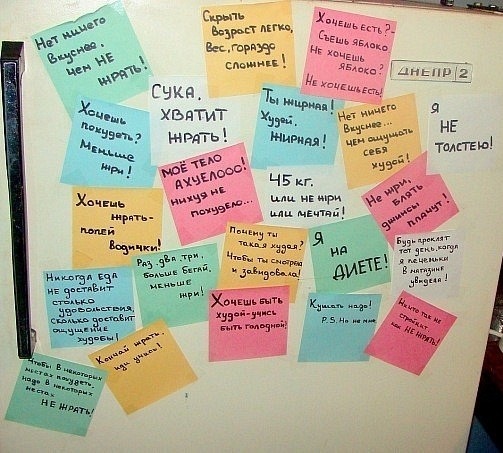 Нет ничего
вкуснее,
чем НЕ
ЖРАТЬ!
Скрыть
возраст легко,
Вес, гораздо
сложнее!
Хочешь есть?-
Съешь яблоко
Не хочешь
яблоко?
Не хочешь есть!
ДНЕПР 2
Хочешь
похудеть?
Меньше
жри!
СУКА,
ХВАТИТ
ЖРАТЬ!
Ты жирная!
Худей,
ЖИРНАЯ!
Нет ничего
Вкуснее...
чем ощущать
себя
худой!
Я
НЕ
ТОЛСТЕЮ!
МОЁ ТЕЛО
АХУЕЛООО!
нихуя не
похудело...
45 кг.
или не жри
или мечтай!
Не жри,
блять
джинсы
плачут!
Хочешь
жрать-
попей
водички!
Почему ты
такая худая?
Чтобы ты смотрела
и завидовала!
Я
НА
ДИЕТЕ!
Будь проклят
тот день, когда
я печеньки
в магазине
увидела!
Никогда Еда
не доставит
столько
удовольствия,
сколько доставит
ощущение
худобы!
Раз, два, три,
больше бегай,
меньше
жри!
Хочешь быть
худой-учись
быть голодной!
Кушать надо!
P.S. Но не мне
Ничто так не
стройнит
как НЕ ЖРАТЬ!
Чтобы в некоторых
местах похудеть,
надо в некоторых
местах
НЕ ЖРАТЬ!
Кончай жрать,
иди учись!